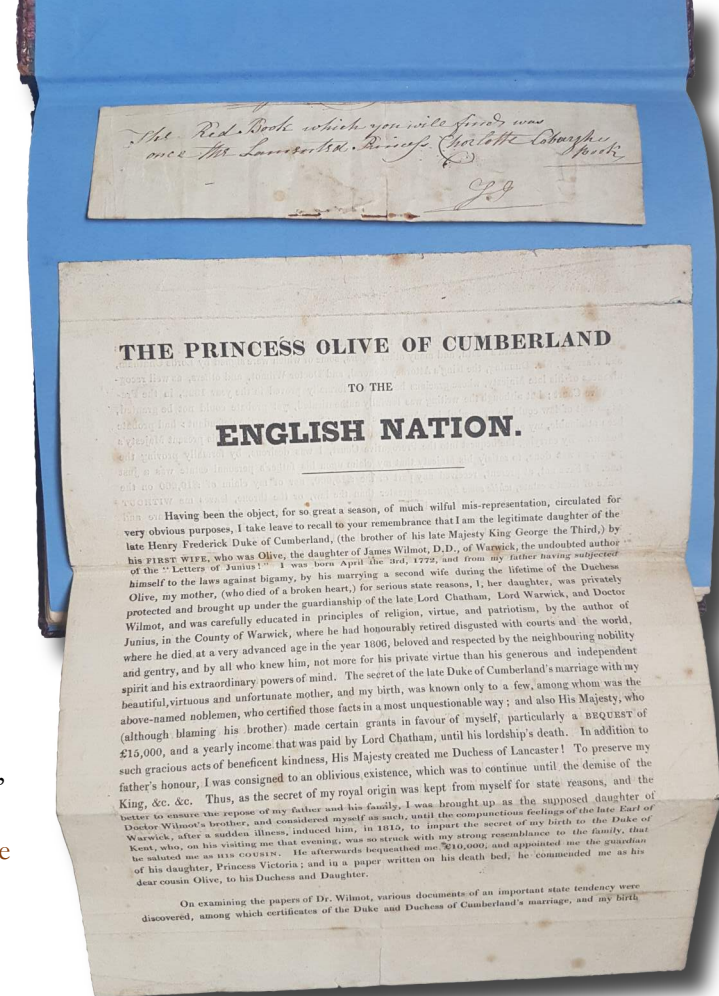 The Red Book which you will find was
once the Lamented Princess Charlotte Coburghs
THE PRINCESS OLIVE OF CUMBERLAND
TO THE
ENGLISH NATION.
Having been the object, for so great a season, of much wilful mis-representation, circulated for
very obvious purposes, I take leave to recall to your remembrance that I am the legitimate daughter of the
late Henry Frederick Duke of Cumberland, (the brother of his late Majesty King George the Third,) by
his FIRST WIFE, who was Olive, the daughter of James Wilmot, D.D., of Warwick, the undoubted author
of the "Letters of Junius!" I was born April the 3rd, 1772, and from my father having subjected
himself to the laws against bigamy, by his marrying a second wife during the lifetime of the Duchess
Olive, my mother, (who died of a broken heart,) for serious state reasons, I, her daughter, was privately
protected and brought up under the guardianship of the late Lord Chatham, Lord Warwick, and Doctor
Wilmot, and was carefully educated in principles of religion, virtue, and patriotism, by the author of
Junius, in the County of Warwick, where he had honourably retired disgusted with courts and the world,
where he died at a very advanced age in the year 1806, beloved and respected by the neighbouring nobility
and gentry, and by all who knew him, not more for his private virtue than his generous and independent
spirit and his extraordinary powers of mind. The secret of the late Duke of Cumberland's marriage with my
beautiful, virtuous and unfortunate mother, and my birth, was known only to a few, among whom was the
above-named noblemen, who certified those facts in a most unquestionable way; and also His Majesty, who
(although blaming his brother) made certain grants in favour of myself, particularly a BEQUEST of
£15,000, and a yearly income that was paid by Lord Chatham, until his lordship's death. In addition to
such gracious acts of beneficent kindness, His Majesty created me Duchess of Lancaster! To preserve my
father's honour, I was consigned to an oblivious existence, which was to continue until the demise of the
King, &c. &c. Thus, as the secret of my royal origin was kept from myself for state reasons, and the
better to ensure the repose of my father and his family, I was brought up as the supposed daughter of
Doctor Wilmot's brother, and considered myself as such, until the compunctious feelings of the late Earl of
Warwick, after a sudden illness, induced him, in 1815, to impart the secret of my birth to the Duke of
Kent, who, on his visiting me that evening, was so struck with my strong resemblance to the family, that
he saluted me as HIS COUSIN. He afterwards bequeathed me £10,000, and appointed me the guardian
of his daughter, Princess Victoria; and in a paper written on his death bed, he commended me as his
dear cousin Olive, to his Duchess and Daughter.
On examining the papers of Dr. Wilmot, various documents of an important state tendency were
discovered, among which certificates of the Duke and Duchess of Cumberland's marriage, and my birth